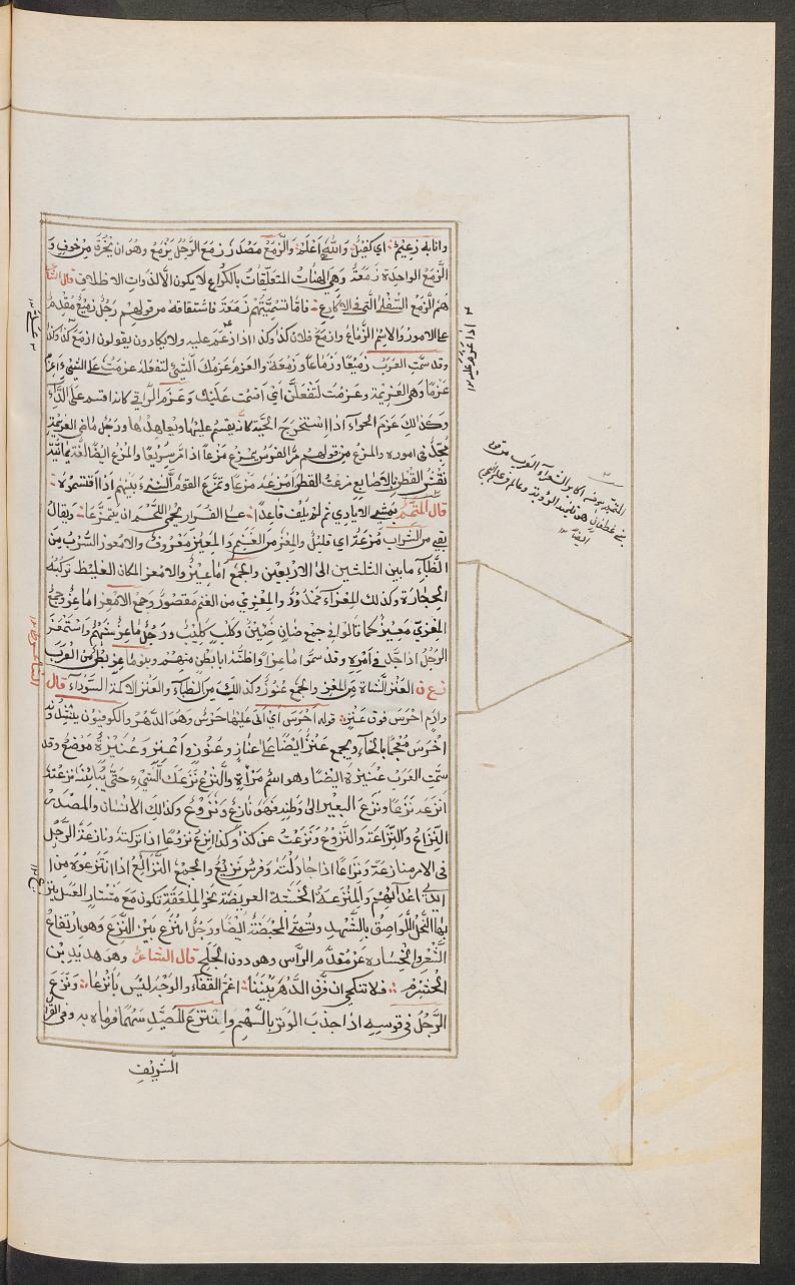 وانا به زعيم اي كفيل والله اعلم والزمع مصدر زمع الرجل يزمع وهو ان يخرق من خوف و
الزمع الواحدة زمعة وهي الهنات المتعلقات بالكراع لا يكون الا لذوات الاظلاف قال الشا
هم الزمع السفلى التي في الاكارع فاما تسميتهم زمعة فاشتقاقه من قولهم رجل زميع مقدم
على الامور والاسم الزماع وازمع فلان كذا وكذا اذا عزم عليه ولا يكادون يقولون ازمع كذا وكذا
وقد سمت العرب زميعا وزماعا وزمعة والعزم عزمك الشئ لتفعله عزمت على الشئ اعزم
عزما وهي العزيمة وعزمت لتفعلن اي اقسمت عليك وعزم الراقي كانه اقسم على الداء
وكذلك عزم الحواء اذا استخرج الحية كانه يقسم عليها ويعاهدها ورجل ماضي العزيمة
مجد في اموره والمزع من قولهم مر الفرس يمزع مزعا اذا مر سريعا والمزع ايضا لغة يمانية
نفش القطن بالاصابع مزعت القطن امزعه مزعا وتمزع القوم الشئ بينهم اذا اقتسموه
قال المتمم بمشي الايادي ثم لم يلف قاعدا على الفرار يحمي اللحم ان يتمزعا ويقال
بقي من الشراب مزعة اي قليل والمعز من الغنم والمعيز معروف والامعوز السرب من
الظباء ما بين الثلثين الى الاربعين والجمع اماعيز والامعز المكان الغليظ تركبه
الحجارة وكذلك المعزاء ممدود والمعزى من الغنم مقصور وجمع الامعز اماعز وجمع
المعزى معيز كما قالوا في جمع ضان ضئين وكلب كليب ورجل ماعز شهم واستمعز
الرجل اذا جد في امره وقد سموا ماعزا واظنه ابا بطن منهم وبنو ماعز بطن من العرب
ز ع ن العنز الشاة من المعز والجمع عنوز وكذلك من الظباء والعنز الاكمة السوداء قال
وارم اخرس فوق عنز قوله اخرس اي اتى عليها حرس وهو الدهر والكوفيون ينشدونه
اخرس معجما بالخاء ويجمع عنز ايضا على عناز وعنوز واعنز وعنيزة موضع وقد
سمت العرب عنيزة ايضا وهو اسم مراة والنزع نزعك الشئ حتى يباينه نزعته
انزعه نزعا ونزع البعير الى وطنه فهو نازع ونزوع وكذلك الانسان والمصدر
النزاع والنزاعة والنزوع ونزعت عن كذا وكذا انزع نزوعا اذا تركته ونازعة الرجل
في الامر منازعة ونزاعا اذا جادلته وفرس نزيع والجمع النزائع اذا انتزعوه من ا
ايدي اعدائهم والمنزعة الخشبة العريضة نحو الملعقة تكون مع مشتار العسل ينزع
بها النحل اللواصق بالشهد وتسمى المحبضة ايضا ورجل انزع بين النزع وهو ارتفاع
الشعر وانحساره عن مقدم الراس وهو دون الجلح قال الشاعر وهو هدبة بن
الخشرم فلا تنكحي ان فرق الدهر بيننا اغم القفاء والوجه ليس بانزعا ونزع
الرجل في قوسه اذا جذب الوتر بالسهم وانتزع للصيد سهما فرماه به وفي القران
الشريف
اذا عزم عليه ١٢